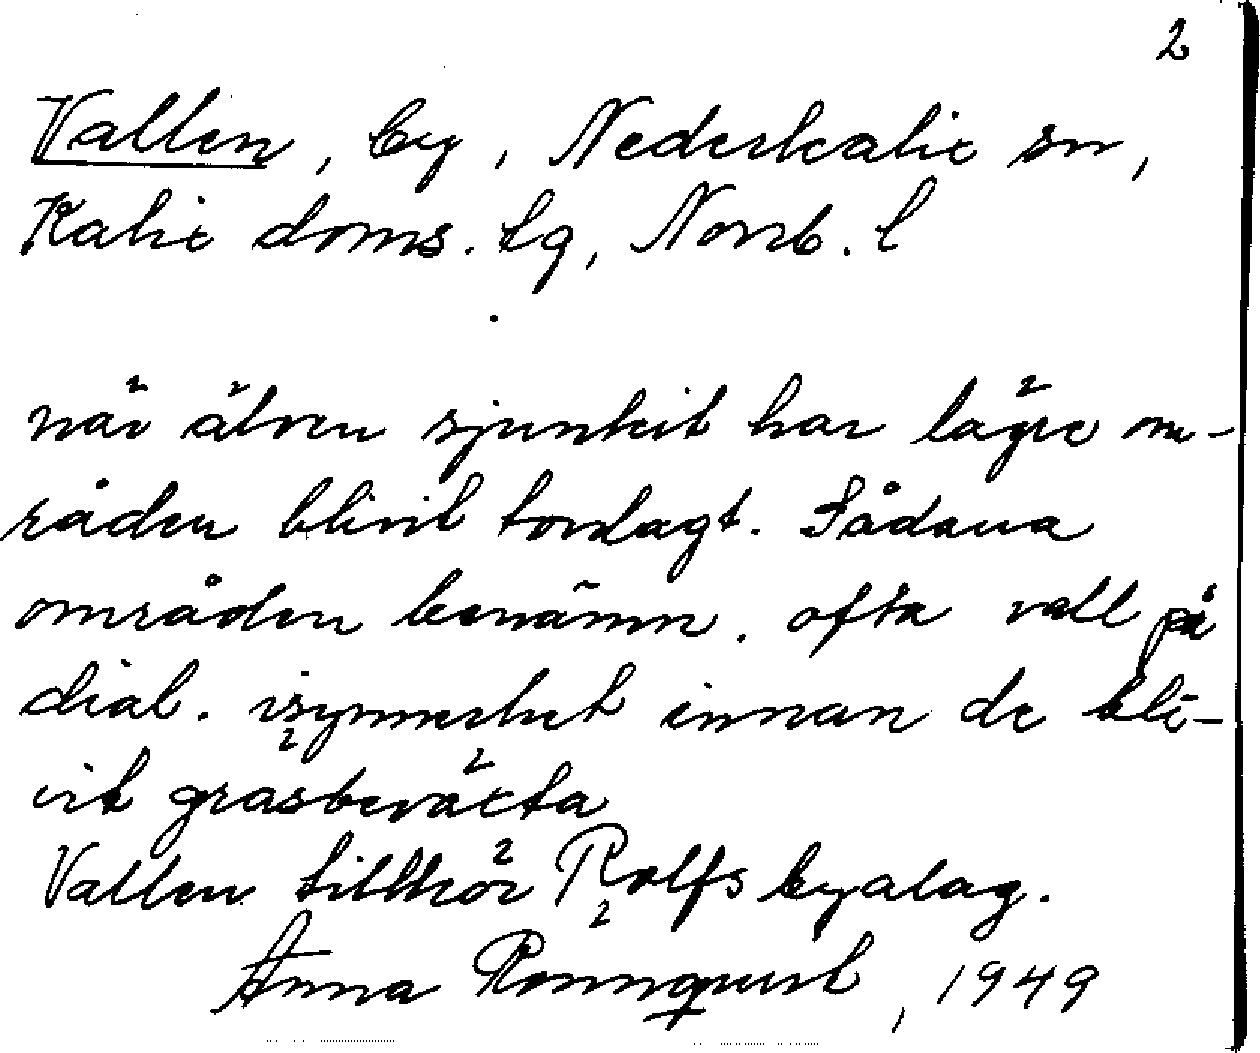 2
Vallen, by, Nederkalix sn,
Kalix doms. lg, Norrb. l
när älven sjunkit har lägre om-
råden blivit torrlagt. Sådana
områden benämn. ofta vall på
dial. isynnerhet innan de bli-
vit gräsbeväxta
Vallen tillhör Rolfs byalag.
Anna Rönnqvist, 1949